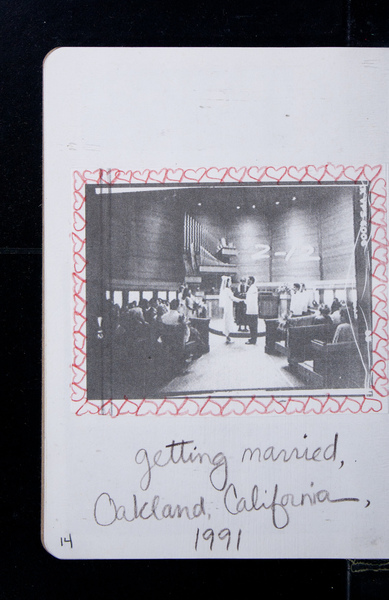 2-12
getting married,
Oakland, California,
1991
14